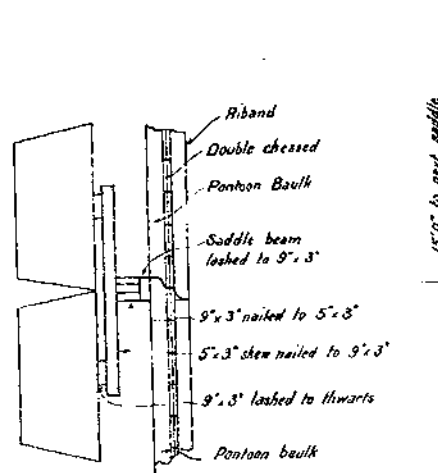 Riband
Double chessed
Pontoon Baulk
Saddle beam
lashed to 9" x 3"
9" x 3" nailed to 5" x 3"
5" x 3" skew nailed to 9" x 3"
9" x 3" lashed to thwarts
Pontoon baulk
15'0" to next saddle